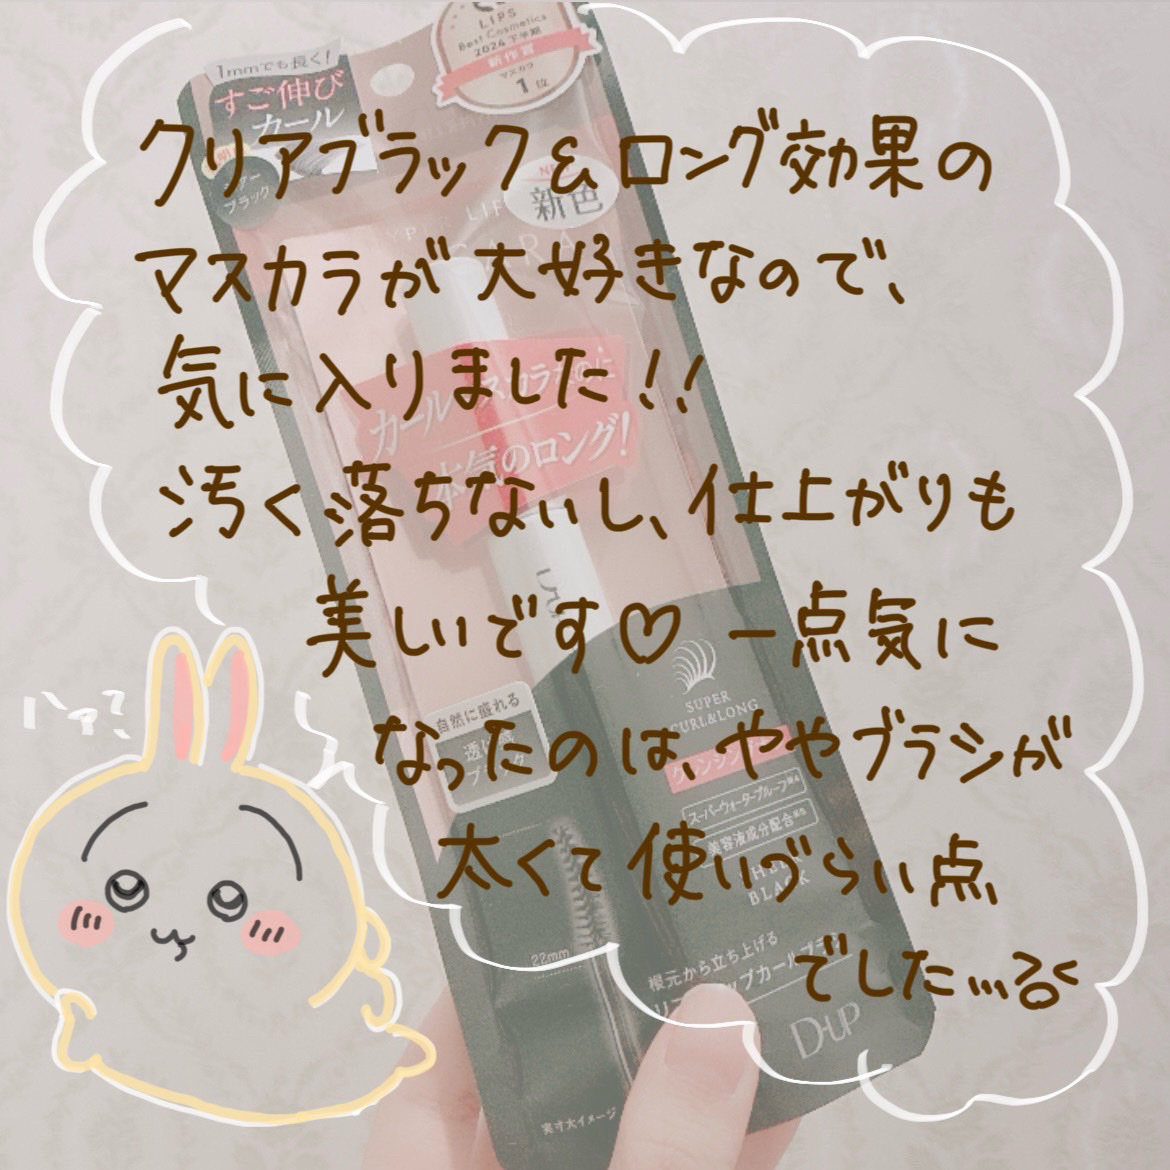 LIPS
Best Cosmetics
2024下半期
新作賞
マスカラ
1位
1mmでも長く!
すご伸び
カール
ブラック
NEW
新色
クリアブラック&ロング効果の
マスカラが大好きなので、
気に入りました!!
汚く落ちないし、仕上がりも
美しいです♡ 一点気に
なったのは、ややブラシが
太くて使いづらい点
でした...
カール
本気のロング!
自然に盛れる
SUPER
CURL&LONG
スーパーウォータープルーフ
美容液成分配合
BLACK
22mm
根元から立ち上げる
D-UP
実寸大イメージ